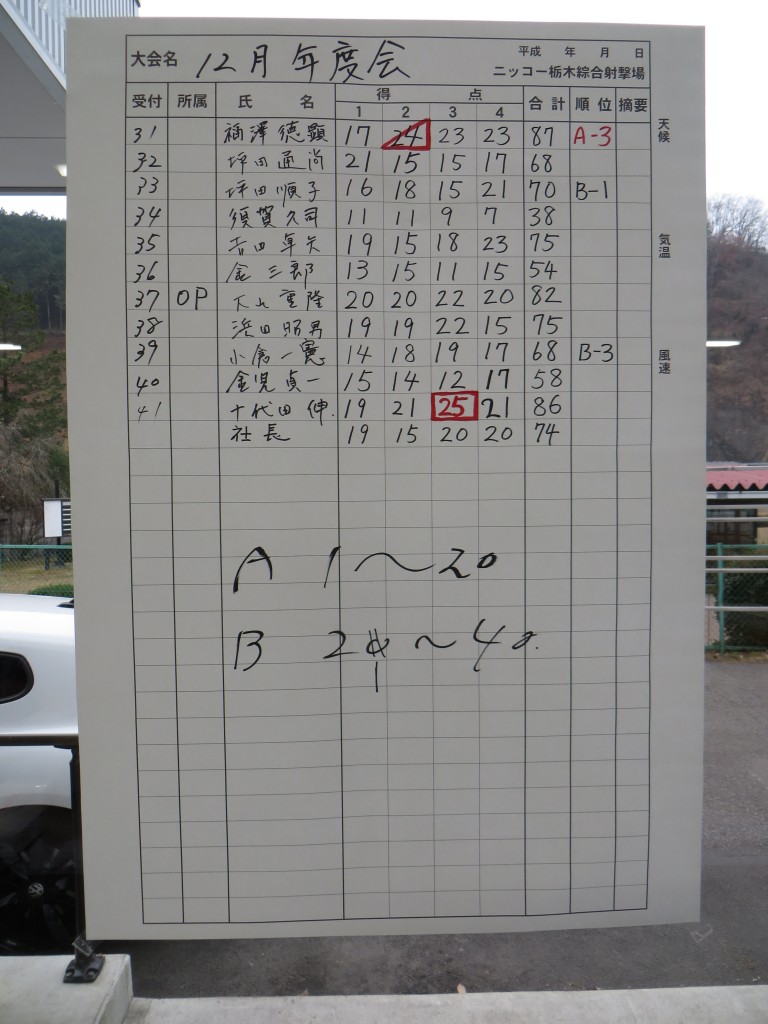 大会名 12月年度会 平成 年 月 日
ニッコー栃木綜合射撃場
受付 所属 氏 名 得 点 合計 順位 摘要
1 2 3 4
31 福澤徳顕 17 24 23 23 87 A-3
32 坪田通尚 21 15 15 17 68
33 坪田順子 16 18 15 21 70 B-1
34 須賀久司 11 11 9 7 38
35 吉田卓矢 19 15 18 23 75
36 金三郎 13 15 11 15 54
37 OP 大山重隆 20 20 22 20 82
38 浜田昭男 19 19 22 15 75
39 小倉一憲 14 18 19 17 68 B-3
40 金児貞一 15 14 12 17 58
41 十代田伸 19 21 25 21 86
社長 19 15 20 20 74
天候
気温
風速
A 1〜20
B 21〜40